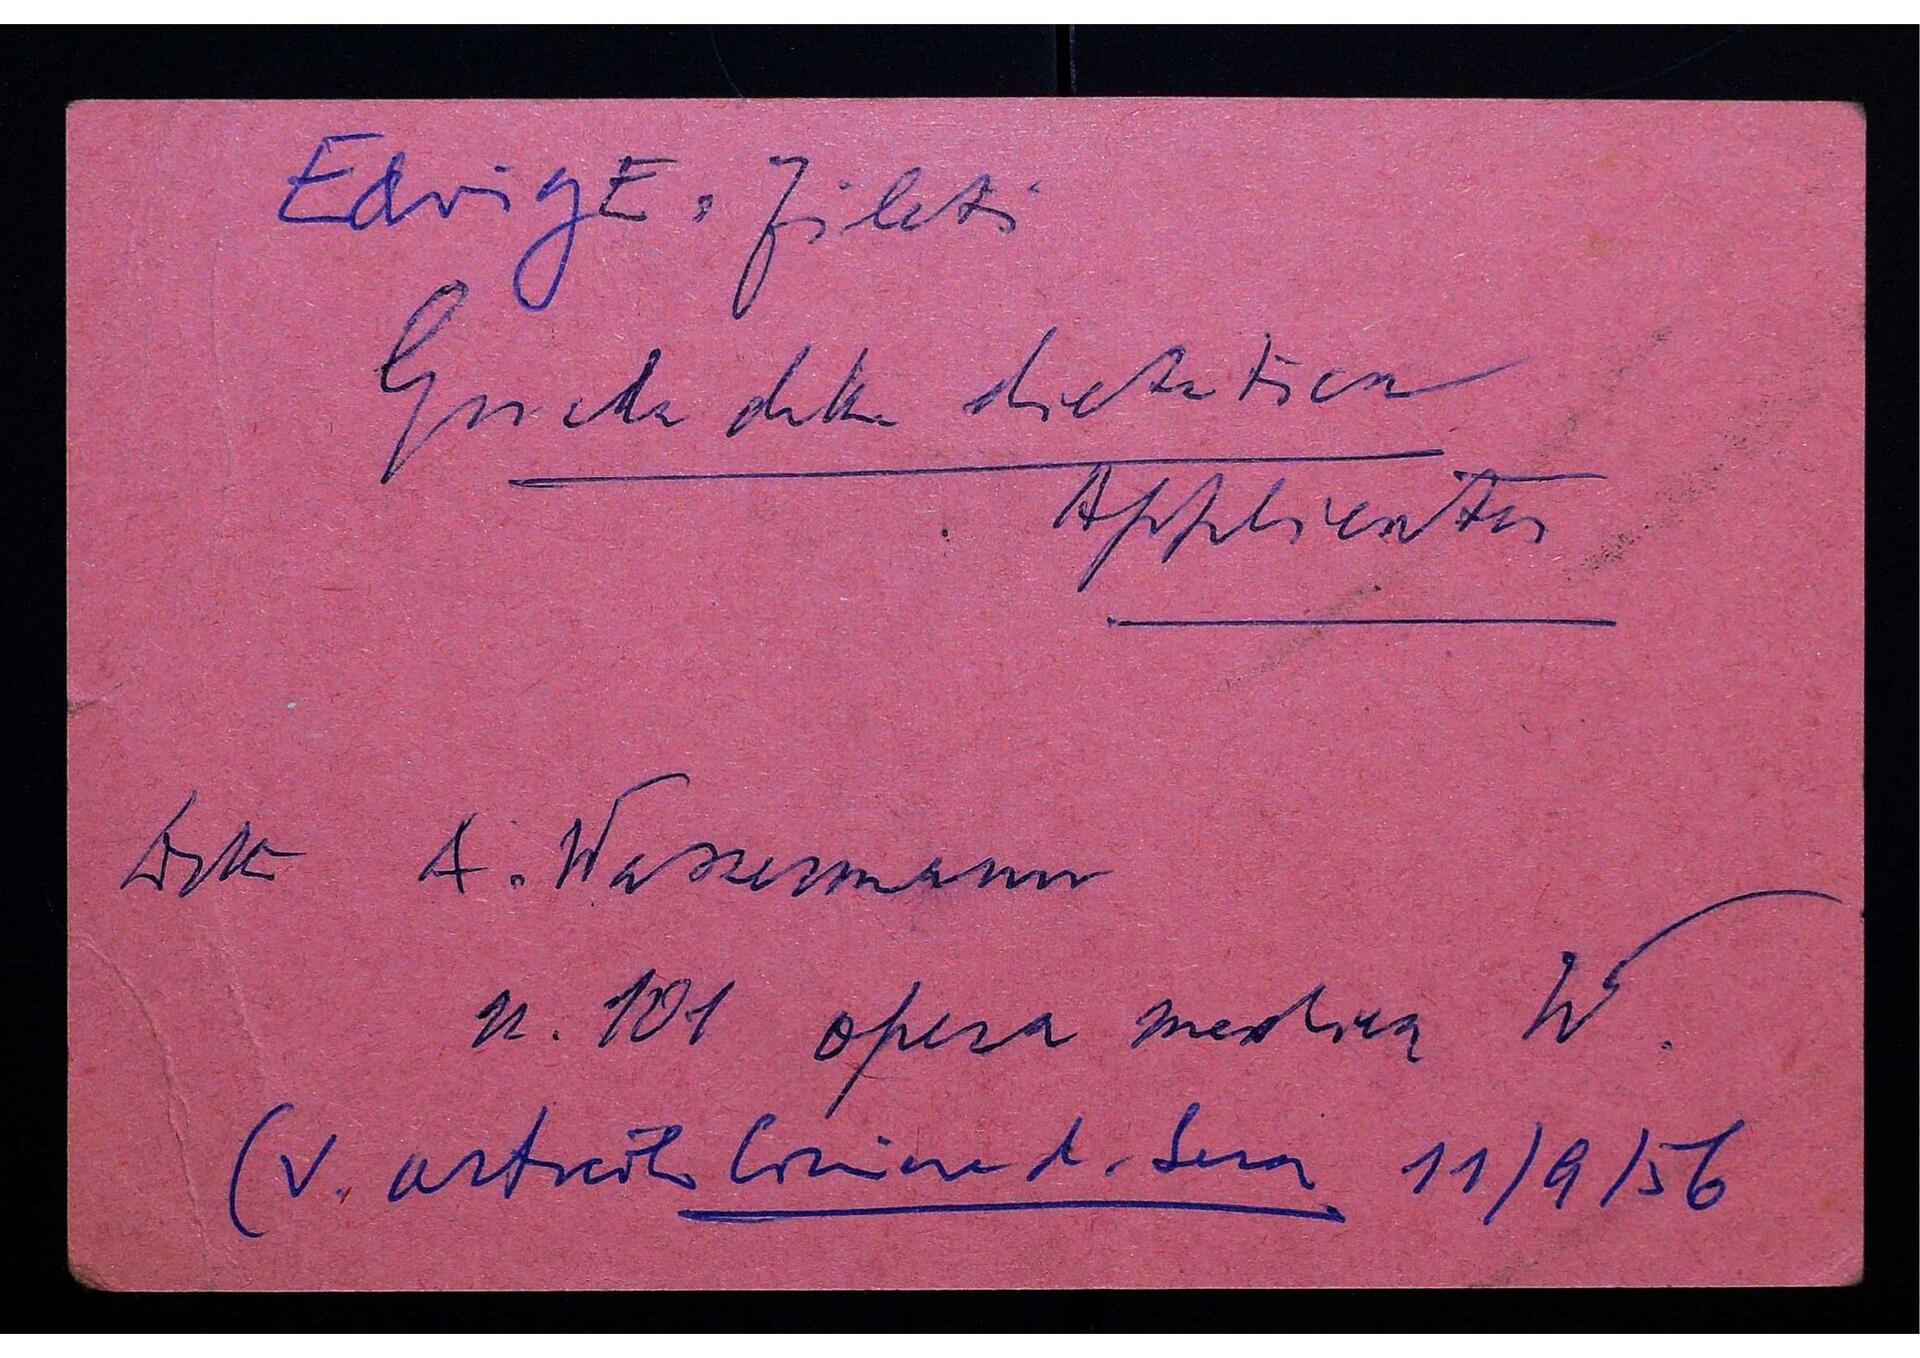 EdvigE Fileti
Guida della dietetica
Applicata
Dott A. Wassermann
n. 101 opera medica W.
(v. articolo Corriere d. Sera 11/9/56